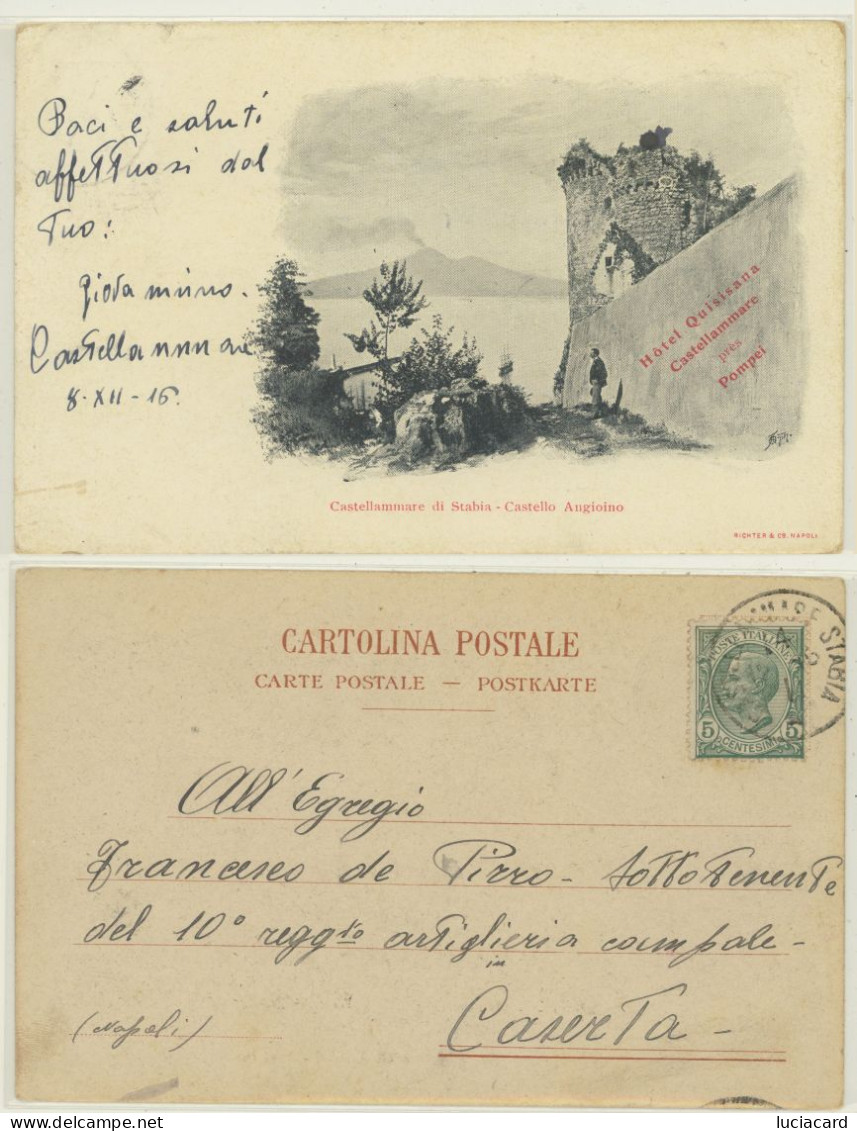 Baci e saluti
affettuosi dal
tuo:
Castellammare
8 - XII - 16.
Hôtel Quisisana
Castellammare
près
Pompei
Castellammare di Stabia - Castello Angioino
RICHTER & Co. NAPOLI
CARTOLINA POSTALE
CARTE POSTALE — POSTKARTE
STABIA
POSTE ITALIANE
5 5
CENTESIMI
All'Egregio
Francesco de Pirro - Sottotenente
del 10° reggto artiglieria campale -
in
Caserta -
(Napoli)
luciacard